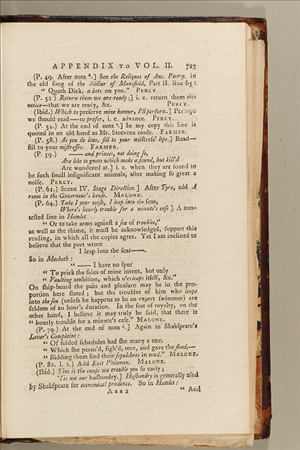 APPENDIX TO VOL. II. 727
(P. 49. After note ⁸.] See the Reliques of Anc. Poetry, in
the old song of the Miller of Mansfield, Part II. line 65:
“ Quoth Dick, a bots on you.” PERCY.
(P. 52.) Return them we are ready;] i. e. return them this
notice—that we are ready, &c. PERCY.
(Ibid.) Which to preserve mine honour, I'll perform.] Perhaps
we should read—to prefer, i. e. advance. PERCY.
(P. 54.) At the end of note ⁵.] In my copy this line is
quoted in an old hand as Mr. Steevens reads. FARMER.
(P. 58.) As you do love, fill to your mistress' lips.] Read—
fill to your mistresses. FARMER.
(P. 59.) —— and princes, not doing so,
Are like to gnats which make a sound, but kill'd
Are wonder'd at.] i. e. when they are found to
be such small insignificant animals, after making so great a
noise. PERCY.
(P. 61.) Scene IV. Stage Direction.] After Tyre, add A
room in the Governour's house. MALONE.
(P. 64.) Take I your wish, I leap into the seat,
Where's hourly trouble for a minute's ease] A con-
tested line in Hamlet
“ Or to take arms against a sea of troubles,”
as well as the rhime, it must be acknowledged, support this
reading, in which all the copies agree. Yet I am inclined to
believe that the poet wrote
I leap into the seat——.
So in Macbeth:
“ —— I have no spur
“ To prick the sides of mine intent, but only
“ Vaulting ambition, which o'erleaps itself, &c.”
On ship-board the pain and pleasure may be in the pro-
portion here stated; but the troubles of him who leaps
into the sea (unless he happens to be an expert swimmer) are
seldom of an hour's duration. In the seat of royalty, on the
other hand, I believe it may truly be said, that there is
“ hourly trouble for a minute's ease.” MALONE.
(P. 79.) At the end of note ⁶.] Again in Shakspeare's
Lover's Complaint:
“ Of folded schedules had she many a one,
“ Which she perus'd, sigh'd, tore, and gave the flood,—
“ Bidding them find their sepulchres in mud.” MALONE.
(P. 82. l. 2.) Add Exit Philemon. MALONE.
(Ibid.) This is the cause we trouble you so early;
'Tis not our husbandry.] Husbandry is generally used
by Shakspeare for economical prudence. So in Hamlet:
Aaa2 “ And